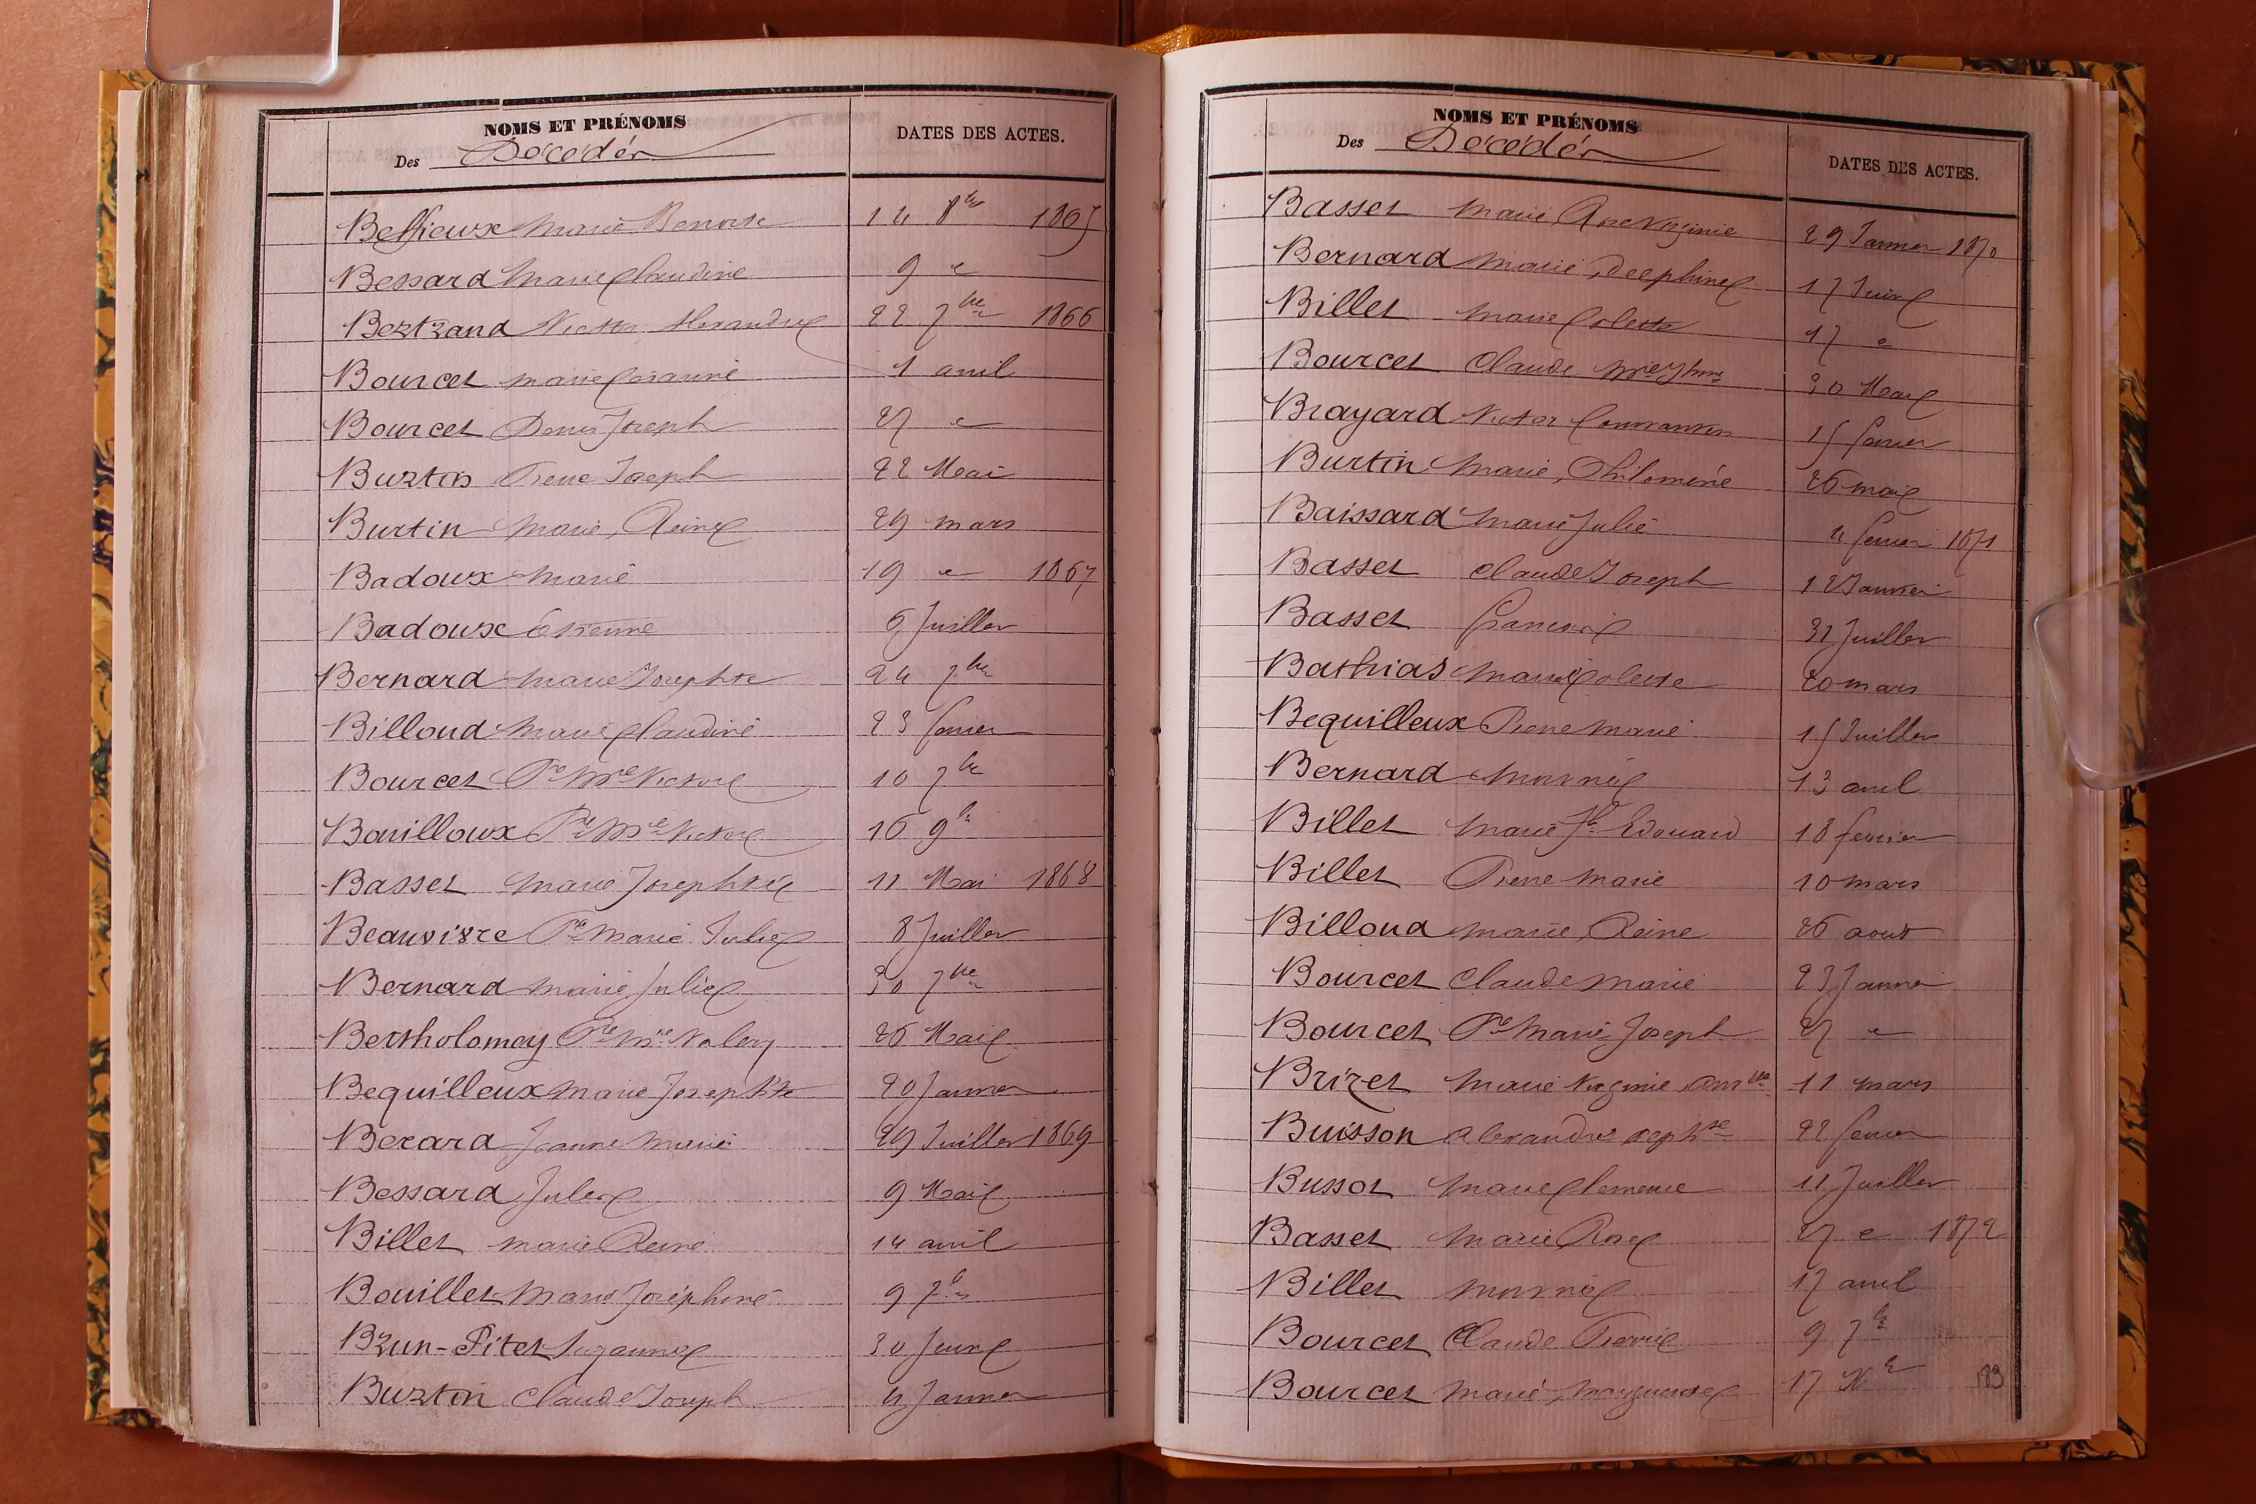 NOMS ET PRÉNOMS
Des Décédés
DATES DES ACTES.
Beffieux Marie Benoite 14 8bre 1865
Bessard Marie Claudine 9 "
Bertrand Victor Alexandre 22 7bre 1866
Bourcet Marie Césarine 1 avril
Bourcet Denis Joseph 27 "
Burtin Pierre Joseph 22 Mai
Burtin Marie, Reine 29 mars
Badoux Marie 19 " 1867
Badoux Etienne 6 Juillet
Bernard Marie Josephte 24 7bre
Billoud Marie Claudine 23 fevrier
Bourcet Pre Mie Victor 10 7bre
Bouilloux Pre Mie Victor 16 9b
Basset Marie Josephte 11 Mai 1868
Beauvivre Pre Marie Jules 8 Juillet
Bernard Marie Julie 30 7bre
Bertholomey Pre Mie Valery 26 Mai
Bequilleux Marie Josephte 20 Janvier
Berard Jeanne Marie 29 Juillet 1869
Bessard Jules 9 Mai
Billet Marie Reine 14 avril
Bouillet Marie Joséphine 9 7b
Brun-Pitet Suzanne 30 Juin
Burtin Claude Joseph 4 Janvier
NOMS ET PRÉNOMS
Des Décédés
DATES DES ACTES.
Basset Marie, Rose Virginie 29 Janvier 1870
Bernard Marie, Delphine 17 Juin
Billet Marie Colette 17 "
Bourcet Claude Mie 30 Mai
Brayard Victor Constantin 15 fevrier
Burtin Marie, Philoméne 26 mai
Baissard Marie Julie 4 fevrier 1871
Basset Claude Joseph 12 Janvier
Basset François 31 Juillet
Bathias Marie Colette 20 mars
Bequilleux Pierre Marie 15 Juillet
Bernard Mornée 13 avril
Billet Marie Jh Edouard 18 fevrier
Billet Pierre Marie 10 mars
Billoud Marie, Reine 26 aout
Bourcet Claude Marie 23 Janvier
Bourcet Pre Marie Joseph 27 "
Brizet Marie Virginie 11 mars
Buisson Alexandre 22 fevrier
Bussot Marie Clemence 11 Juillet
Basset Marie Rose 27 " 1872
Billet Mornée 17 avril
Bourcet Claude Pierre 9 7b
Bourcet Marie, Marguerite 17 Xbre
123